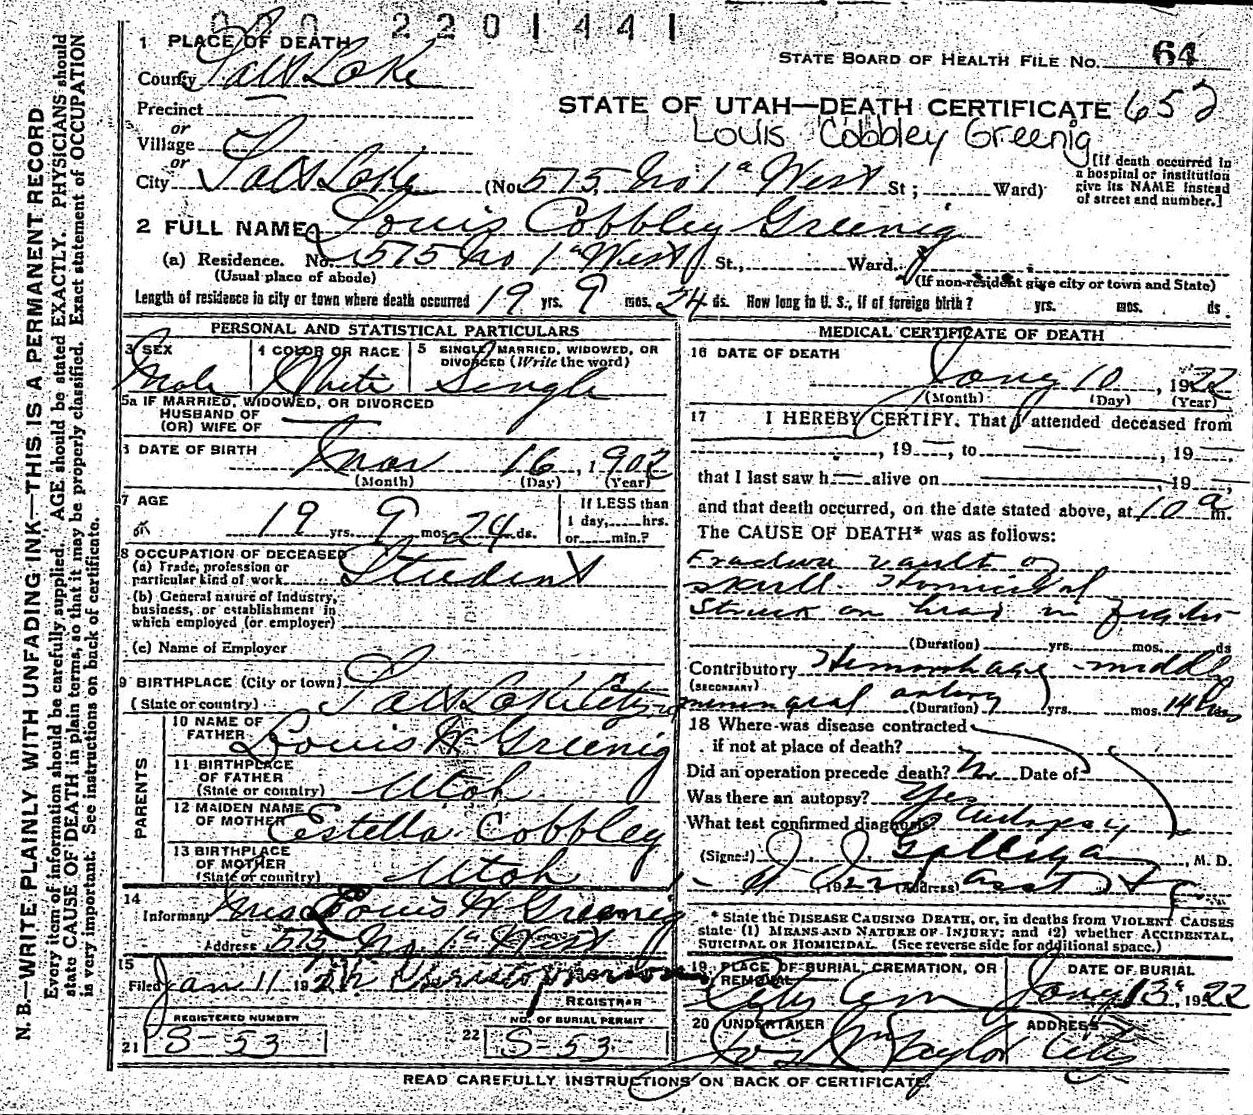 000 2201441
1 PLACE OF DEATH
County Salt Lake
STATE BOARD OF HEALTH FILE NO. 64
Precinct
STATE OF UTAH—DEATH CERTIFICATE 652
or
Village
Louis Cobbley Greenig
or
City Salt Lake (No. 575 No 1st West St; Ward)
[If death occurred in a hospital or institution give its NAME instead of street and number.]
2 FULL NAME Louis Cobbley Greenig
(a) Residence. No. 575 No 1st West St., Ward.
(Usual place of abode) (If non-resident give city or town and State)
Length of residence in city or town where death occurred 19 yrs. 9 mos. 24 ds. How long in U. S., if of foreign birth? yrs. mos. ds.
PERSONAL AND STATISTICAL PARTICULARS
3 SEX Male
4 COLOR OR RACE White
5 SINGLE, MARRIED, WIDOWED, OR DIVORCED (Write the word) Single
5a IF MARRIED, WIDOWED, OR DIVORCED
HUSBAND OF
(OR) WIFE OF
6 DATE OF BIRTH Mar 16, 1902
(Month) (Day) (Year)
7 AGE 19 yrs. 9 mos. 24 ds.
If LESS than
1 day, hrs.
or min.?
8 OCCUPATION OF DECEASED
(a) Trade, profession or
particular kind of work Student
(b) General nature of Industry,
business, or establishment in
which employed (or employer)
(c) Name of Employer
9 BIRTHPLACE (City or town)
(State or country) Salt Lake City, U
PARENTS
10 NAME OF
FATHER Louis W Greenig
11 BIRTHPLACE
OF FATHER
(State or country) Utah
12 MAIDEN NAME
OF MOTHER Estella Cobbley
13 BIRTHPLACE
OF MOTHER
(State or country) Utah
14
Informant Mrs Louis W Greenig
Address 575 No. 1st West
15
Filed Jan 11 192
REGISTRAR
REGISTERED NUMBER
21 S-53
NO. OF BURIAL PERMIT
22 S-53
MEDICAL CERTIFICATE OF DEATH
16 DATE OF DEATH
Jany 10, 1922
(Month) (Day) (Year)
17 I HEREBY CERTIFY, That I attended deceased from
, 19 , to , 19 ,
that I last saw h alive on , 19 ,
and that death occurred, on the date stated above, at 10 a m.
The CAUSE OF DEATH* was as follows:
Fracture vault of
skull. Homicidal
Struck on head in
(Duration) yrs. mos. ds
Contributory Hemorrhage - middle
(SECONDARY)
meningeal artery (Duration) yrs. mos. 14 hrs
18 Where was disease contracted
if not at place of death?
Did an operation precede death? No Date of
Was there an autopsy? Yes
What test confirmed diagnosis? Autopsy
(Signed) , M. D.
1922 (Address)
* State the DISEASE CAUSING DEATH, or, in deaths from VIOLENT CAUSES
state (1) MEANS AND NATURE OF INJURY; and (2) whether ACCIDENTAL,
SUICIDAL OR HOMICIDAL. (See reverse side for additional space.)
19 PLACE OF BURIAL, CREMATION, OR
REMOVAL
City Cem
DATE OF BURIAL
Jany 13, 1922
20 UNDERTAKER
Jos Wm Taylor
ADDRESS
City
READ CAREFULLY INSTRUCTIONS ON BACK OF CERTIFICATE.
N. B.—WRITE PLAINLY WITH UNFADING INK—THIS IS A PERMANENT RECORD
Every item of information should be carefully supplied. AGE should be stated EXACTLY. PHYSICIANS should
state CAUSE OF DEATH in plain terms, so that it may be properly classified. Exact statement of OCCUPATION
is very important. See instructions on back of certificate.